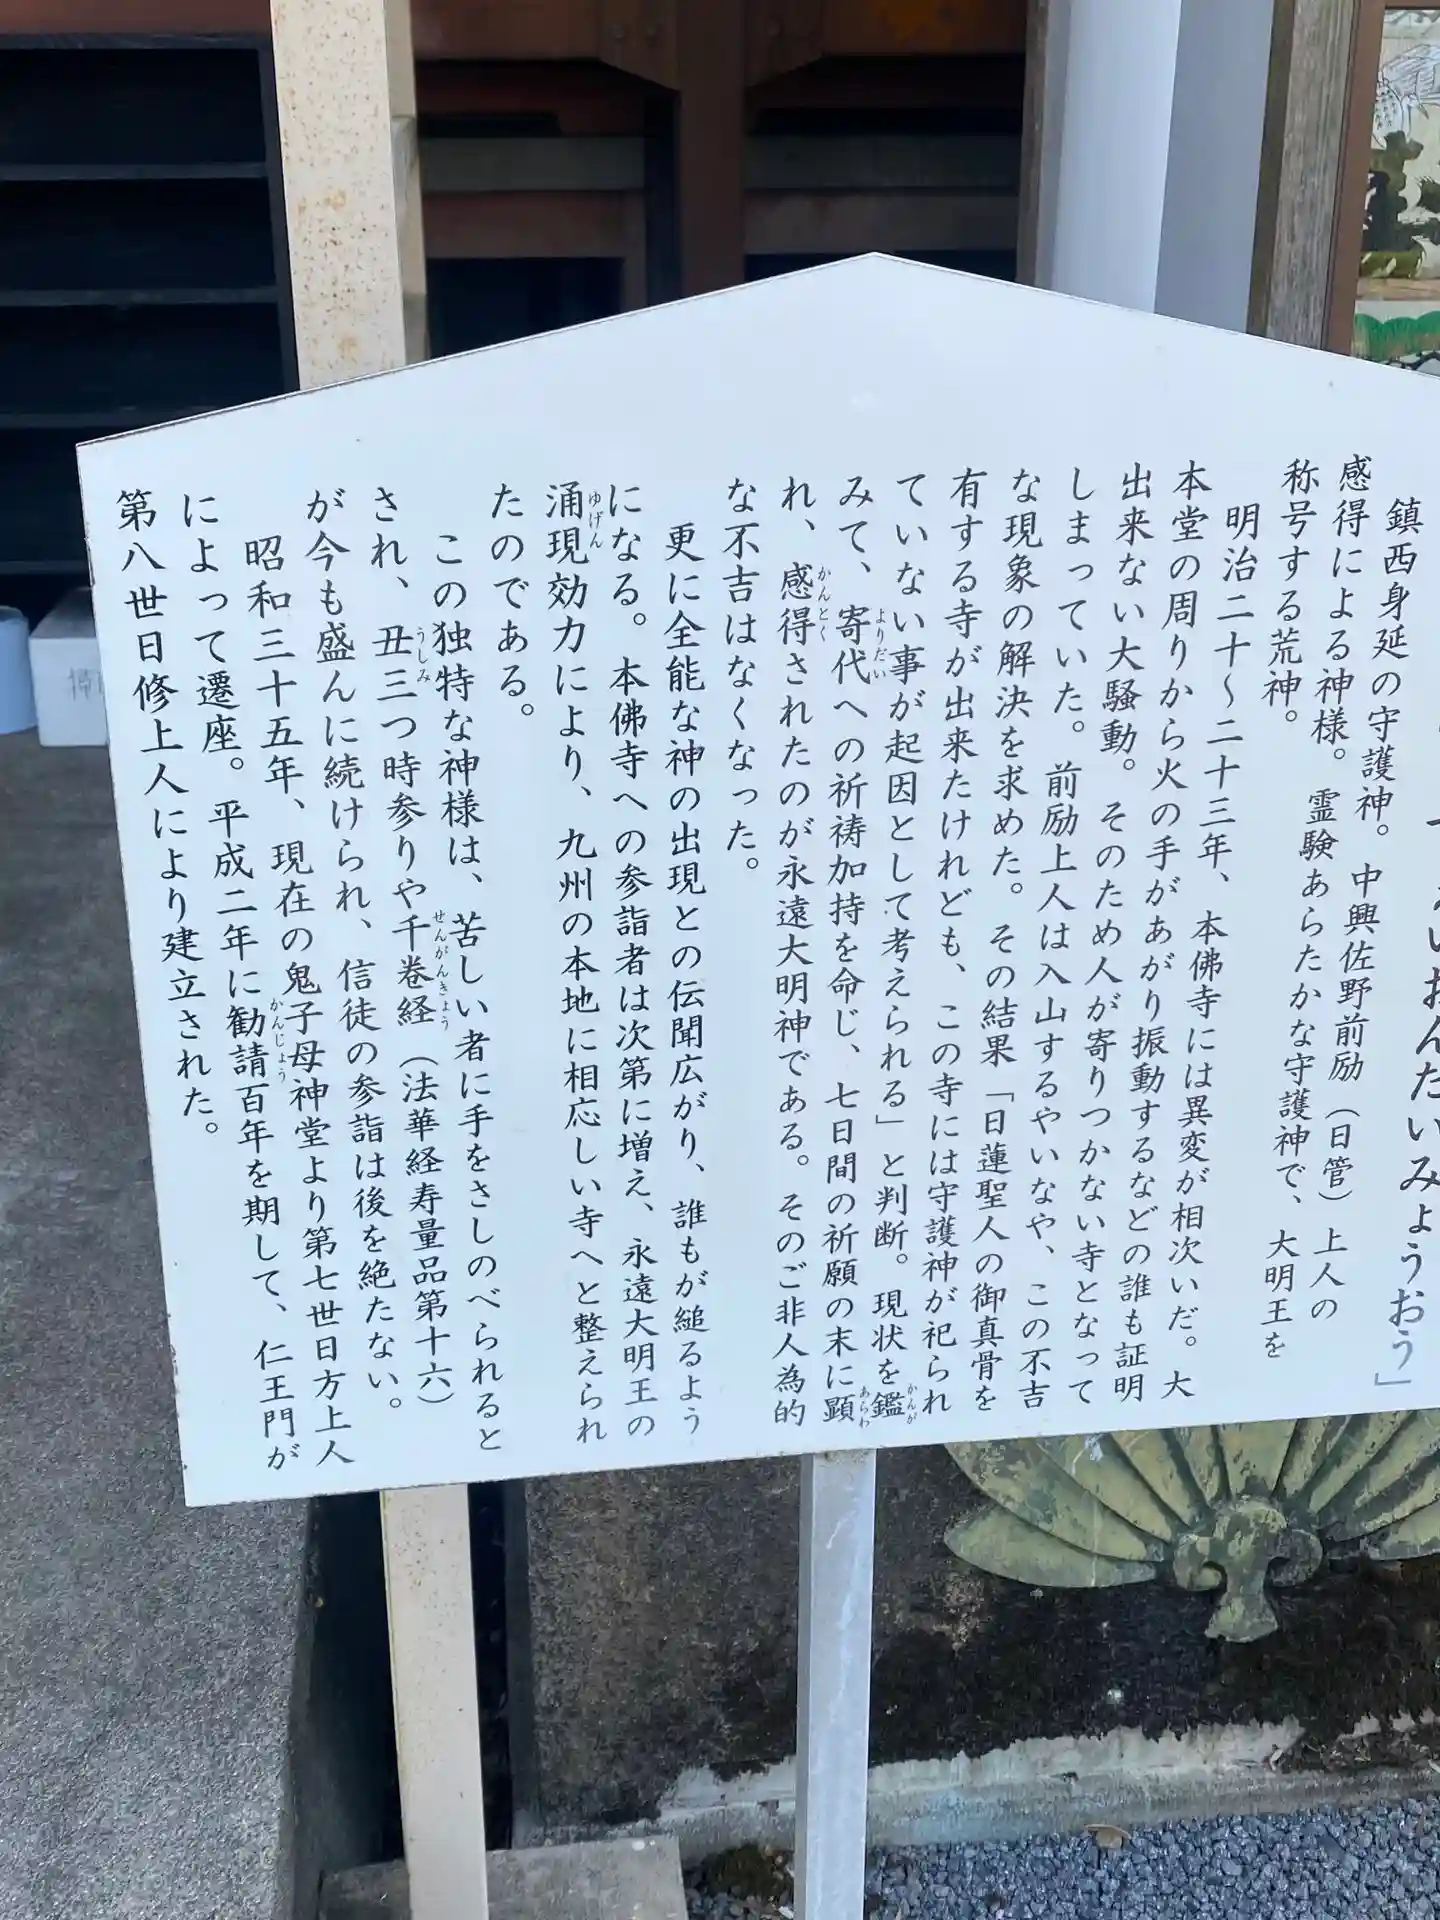 えいおんだいみょうおう」
鎮西身延の守護神。中興佐野前励（日管）上人の
感得による神様。霊験あらたかな守護神で、大明王を
称号する荒神。
明治二十～二十三年、本佛寺には異変が相次いだ。大
本堂の周りから火の手があがり振動するなどの誰も証明
出来ない大騒動。そのため人が寄りつかない寺となって
しまっていた。前励上人は入山するやいなや、この不吉
な現象の解決を求めた。その結果「日蓮聖人の御真骨を
有する寺が出来たけれども、この寺には守護神が祀られ
ていない事が起因として考えられる」と判断。現状を鑑
かんが
みて、寄代への祈祷加持を命じ、七日間の祈願の末に顕
よりだい
あらわ
れ、感得されたのが永遠大明神である。そのご非人為的
かんとく
な不吉はなくなった。
更に全能な神の出現との伝聞広がり、誰もが縋るよう
になる。本佛寺への参詣者は次第に増え、永遠大明王の
涌現効力により、九州の本地に相応しい寺へと整えられ
ゆげん
たのである。
この独特な神様は、苦しい者に手をさしのべられると
され、丑三つ時参りや千巻経（法華経寿量品第十六）
うしみ
せんがんきょう
が今も盛んに続けられ、信徒の参詣は後を絶たない。
昭和三十五年、現在の鬼子母神堂より第七世日方上人
によって遷座。平成二年に勧請百年を期して、仁王門が
かんじょう
第八世日修上人により建立された。